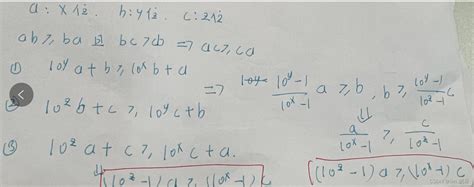 a: x位. b: y位. c: z位
ab≥ba 且 bc≥cb ⇒ ac≥ca
① 10^y a + b ≥ 10^x b + a
⇒ (10^y-1)/(10^x-1) a ≥ b, b ≥ (10^y-1)/(10^z-1) c
② 10^z b + c ≥ 10^y c + b
⇓
a/(10^x-1) ≥ c/(10^z-1)
③ 10^z a + c ≥ 10^x c + a.
↓
(10^z-1) a ≥ (10^x-1) c
((10^z-1) a ≥ (10^x-1) c